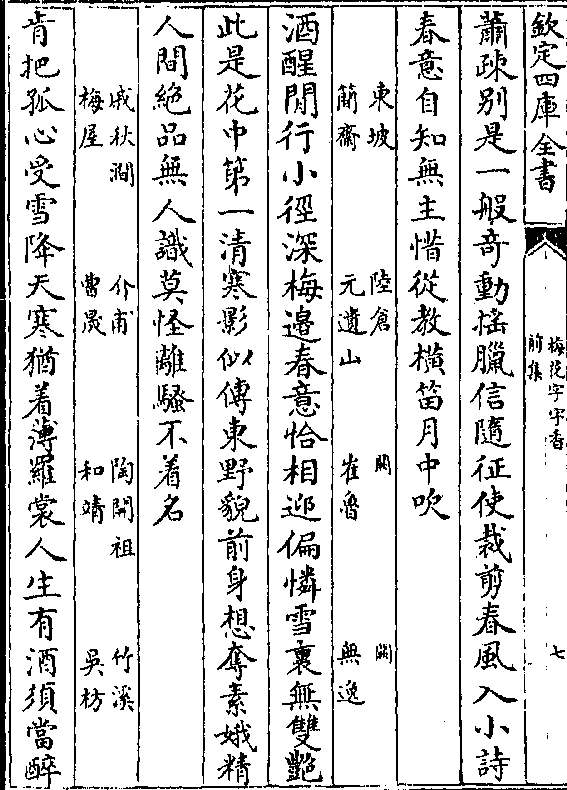 欽定四庫全書
梅花字字香
前集
七
蕭疎別是一般奇動搖臘信隨征使裁剪春風入小詩
春意自知無主惜從教橫笛月中吹
東坡 陸倉 闕 闕
簡齋 元遺山 崔魯 無逸
酒醒閒行小徑深梅邉春意恰相迎偏憐雪裏無雙艷
此是花中第一清寒影似傳東野貌前身想奪素娥精
人間絶品無人識莫怪離騷不着名
戚秋澗 介甫 陶開祖 竹溪
梅屋 曹晟 和靖 吳枋
肯把孤心受雪降天寒猶着薄羅裳人生有酒須當醉